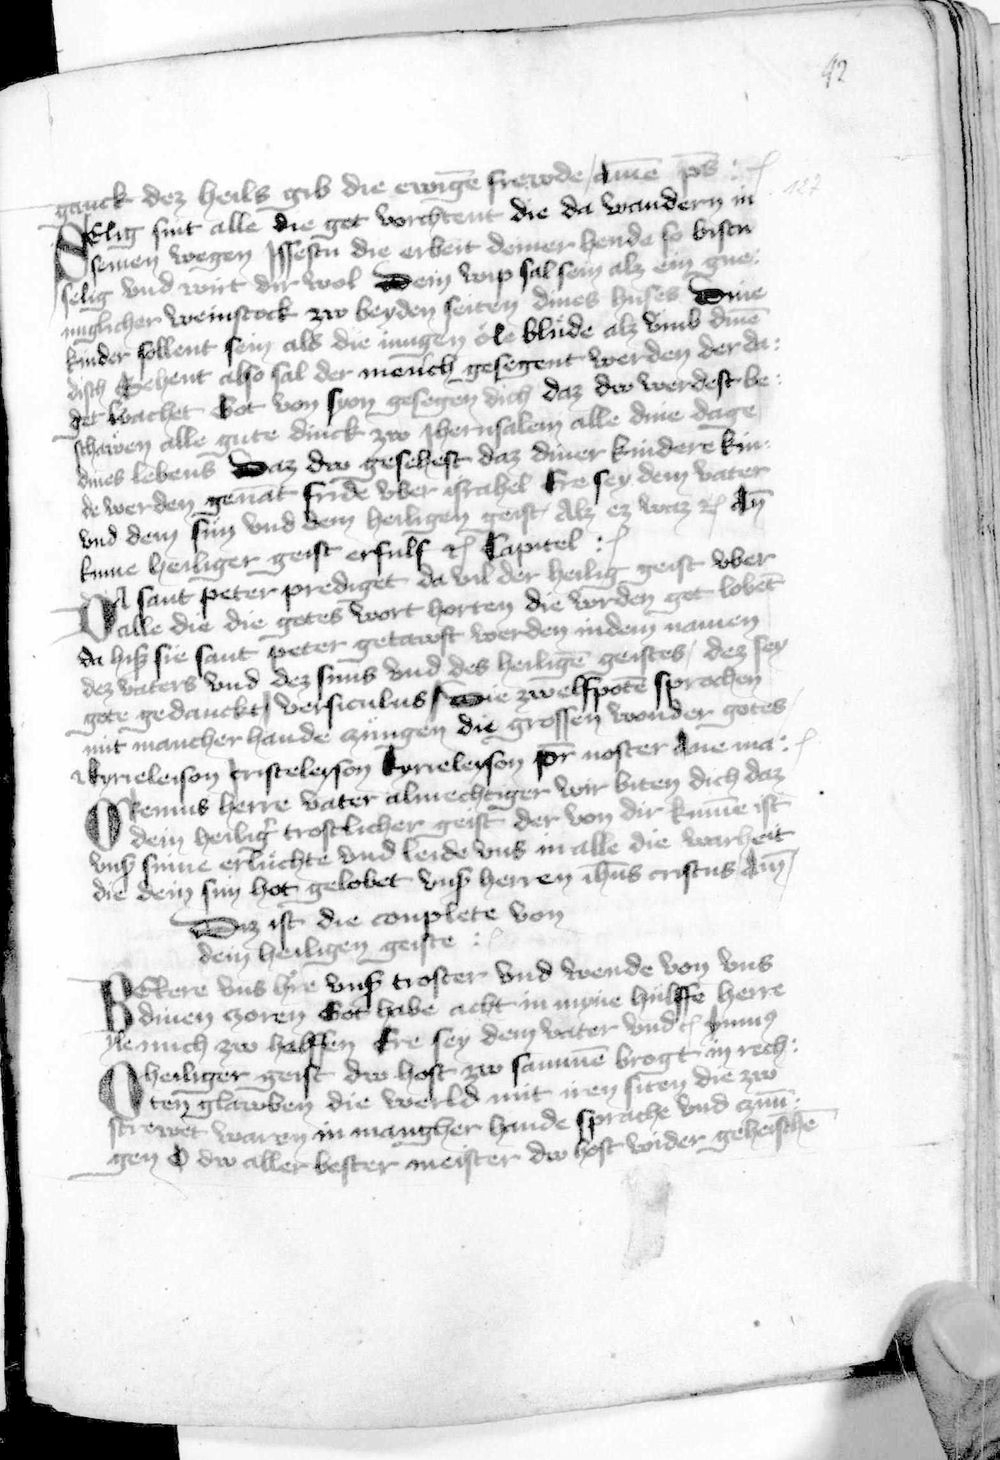 42
ganck dez heils gib die ewigē frewde / amē p̄s :
127
SElig sint alle die got vorchtent die da wandern in
seinen wegen Jssestu die erbeit deiner hende so bistu
selig vnd wirt dir wol Dein wip sal sein alz ein gne:
nuglicher weinstock zw beyden seiten dines huses Dine
kinder sollent sein als die iungen öle blüde alz vmb dinē
disch Sehent also sal der mensch gesegent werden der da:
get wachet Got von syon gesegen dich daz dw werdest be:
schawen alle gute dinck zw Jherusalem alle dine dage
dines lebens Daz dw gesehest daz diner kindere kin:
de werden genāt fride vber israhel Ere sey dem vater
vnd dem sūn vnd dem heiligen geist Alz ez waz etc An̄
kume heiliger geist erfulle etc Capitel :
DA sant peter prediget da vil der heilig geist vber
alle die die gotes wort horten die wrden got lobēt
da hiß sie sant peter getawft werden in dem namen
dez vaters vnd dez suns vnd des heiligē geistes / dez sey
gote gedanckt / versiculus / Die zwelfpotē sprochen
mit mancher hande zungen die grossen wonder gotes
kyrieleison cristeleyson kyrieleyson pr̄ noster Aue ma:
ORemus herre vater almechtiger wir biten dich daz
dein heilig' trostlicher geist der von dir kumē ist
vnß sinne erluchte vnd leide vns in alle die warheit
die dein sun hot gelobet vnß herren ihūs cristus Am̄
Diz ist die conplete von
dem heiligen geiste :
BEkere vns h're vnß troster vnd wende von vns
dinen zoren Got habe acht in myne hulffe herre
yle mich zw helffen Ere sey dem vater vnd etc ymnus
O heiliger geist dw host zw sammē brogt in rech:
ten glawben die werld mit iren siten die zw
strewet waren in mangher hande sprache vnd zun:
gen O dw aller bester meister dw host wider geheischē